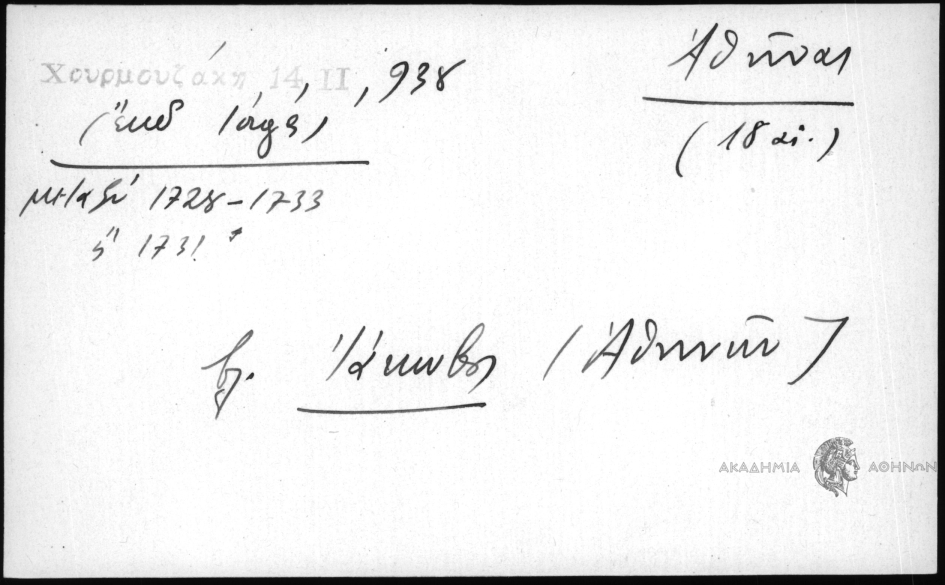 Χουρμουζάκη 14, II, 938
Ἀθῆναι
(ἔκδ
(18 αἰ.)
μεταξύ 1728-1733
ἤ 1731
βλ. Ἰάκωβος (Ἀθηνῶν)
ΑΚΑΔΗΜΙΑ ΑΘΗΝΩΝ